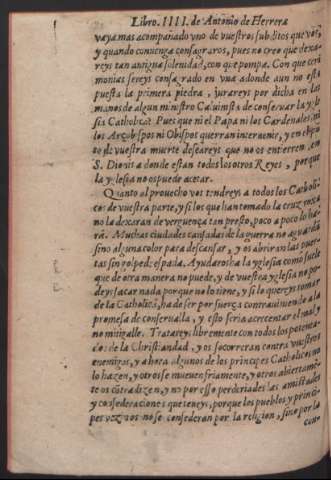 Libro. IIII. de Antonio de Herrera
vaya mas acompañado vno de vuestros subditos que vos,
y quando conuenga consagraros, pues no creo que dexa-
reys tan antigua solenidad, con que pompa. Con que ceri
monias sereys consagrado en vna adonde aun no està
puesta la primera piedra, jurareys por dicha en las
manos de algun ministro Caluinista de conseruar la ygle
sia Catholica? Pues que ni el Papa ni los Cardenales, ni
los Arçobispos ni Obispos querran interuenir, y en el
te de vuestra muerte deseareys que no os entierren en
S. Dionis a donde estan todos los otros Reys, porque
la yglesia no os puede acetar.
Quanto al prouecho vos tendreys a todos los Catholi
cos de vuestra parte, y si los que han tomado la cruz roxa
no la dexaran de verguença tan presto, poco a poco lo ha
rà. Muchas ciudades cansadas de la guerra no aguardã
sino algun color para descansar, y os abriran las puer-
tas sin rolpe de espada. Ayudaros ha la yglesia como suele
que de otra manera no puede, y de vuestra yglesia no po-
deys sacar nada porque no lo tiene, y si lo quereys tomar
de la Catholica, ha de ser por fuerça contrauiniendo a la
promesa de conserualla, y esto seria acrecentar el mal, y
no mitigalle. Tratareys libremente con todos los potenta-
dos de la Christiandad, y os socorreran contra vuestros
enemigos, y a hora algunos de los principes Catholicos no
lo hazen, y otros se mueuen friamente, y otros abiertamẽ-
te os cõtradizen, y no por esso perderiades las amistades
y confederaciones que teneys, porque los pueblos y princi-
pes vezinos no se confederan por la religion, sino por la
con-